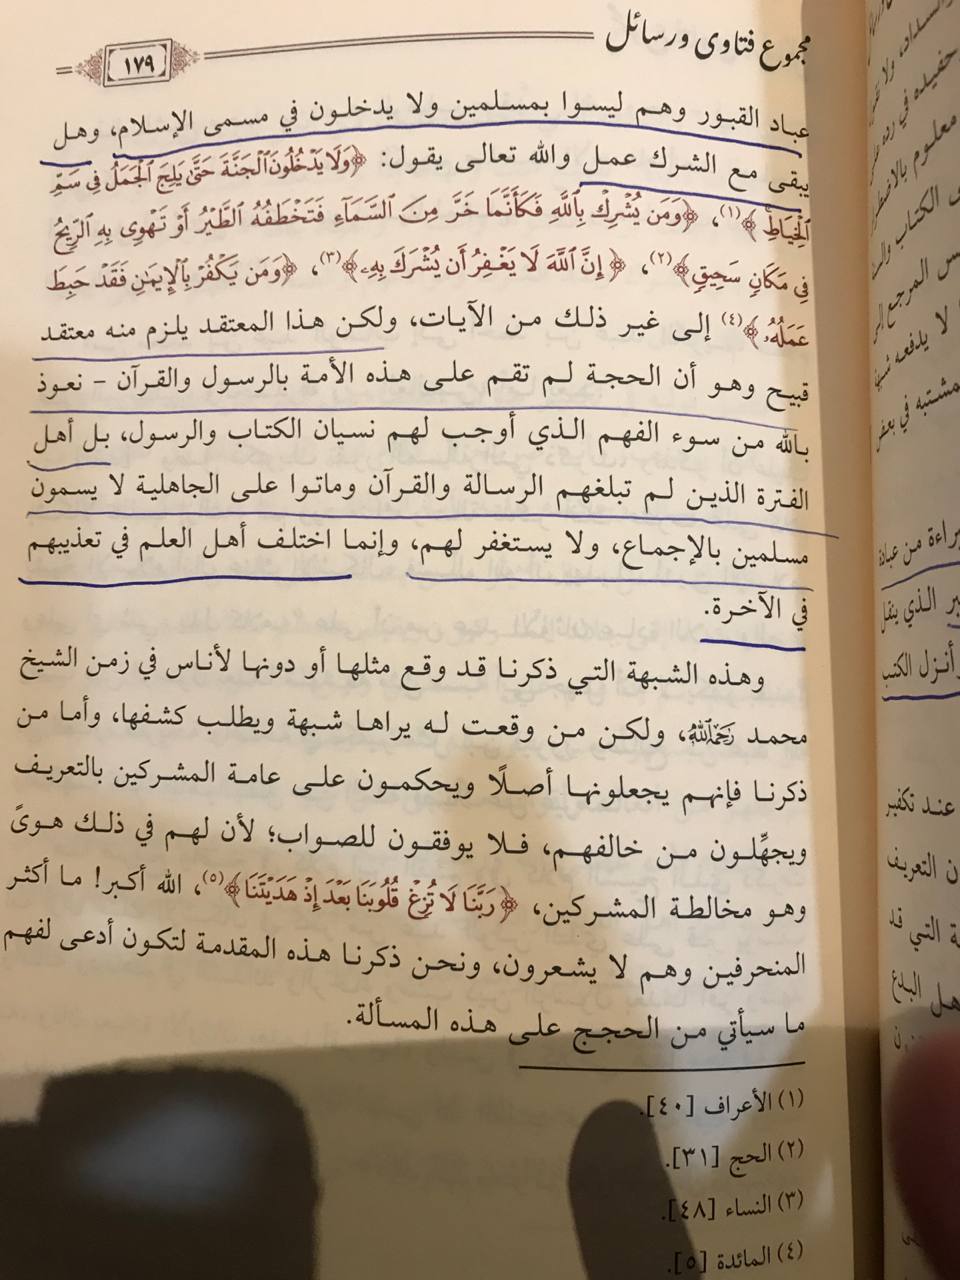 مجموع فتاوى ورسائل
١٧٩
عباد القبور وهم ليسوا بمسلمين ولا يدخلون في مسمى الإسلام، وهل
يبقى مع الشرك عمل والله تعالى يقول: ﴿وَلَا يَدْخُلُونَ ٱلْجَنَّةَ حَتَّىٰ يَلِجَ ٱلْجَمَلُ فِي سَمِّ
ٱلْخِيَاطِ﴾(١)، ﴿وَمَن يُشْرِكْ بِٱللَّهِ فَكَأَنَّمَا خَرَّ مِنَ ٱلسَّمَآءِ فَتَخْطَفُهُ ٱلطَّيْرُ أَوْ تَهْوِى بِهِ ٱلرِّيحُ
فِي مَكَانٍ سَحِيقٍ﴾(٢)، ﴿إِنَّ ٱللَّهَ لَا يَغْفِرُ أَن يُشْرَكَ بِهِۦ﴾(٣)، ﴿وَمَن يَكْفُرْ بِٱلْإِيمَٰنِ فَقَدْ حَبِطَ
عَمَلُهُۥ﴾(٤) إلى غير ذلك من الآيات، ولكن هذا المعتقد يلزم منه معتقد
قبيح وهو أن الحجة لم تقم على هذه الأمة بالرسول والقرآن – نعوذ
بالله من سوء الفهم الذي أوجب لهم نسيان الكتاب والرسول، بل أهل
الفترة الذين لم تبلغهم الرسالة والقرآن وماتوا على الجاهلية لا يسمون
مسلمين بالإجماع، ولا يستغفر لهم، وإنما اختلف أهل العلم في تعذيبهم
في الآخرة.
وهذه الشبهة التي ذكرنا قد وقع مثلها أو دونها لأناس في زمن الشيخ
محمد رَحِمَهُ ٱللَّهُ، ولكن من وقعت له يراها شبهة ويطلب كشفها، وأما من
ذكرنا فإنهم يجعلونها أصلًا ويحكمون على عامة المشركين بالتعريف
ويجهِّلون من خالفهم، فلا يوفقون للصواب؛ لأن لهم في ذلك هوىً
وهو مخالطة المشركين، ﴿رَبَّنَا لَا تُزِغْ قُلُوبَنَا بَعْدَ إِذْ هَدَيْتَنَا﴾(٥)، الله أكبر! ما أكثر
المنحرفين وهم لا يشعرون، ونحن ذكرنا هذه المقدمة لتكون أدعى لفهم
ما سيأتي من الحجج على هذه المسألة.
(١) الأعراف [٤٠].
(٢) الحج [٣١].
(٣) النساء [٤٨].
(٤) المائدة [٥].
معلوم
الكتاب
المرجع
لا يدفعه
في بعض
براءة من عبادة
الذي ينقل
وأنزل الكتب
عند تكفير
التعريف
التي قد
أهل البدع